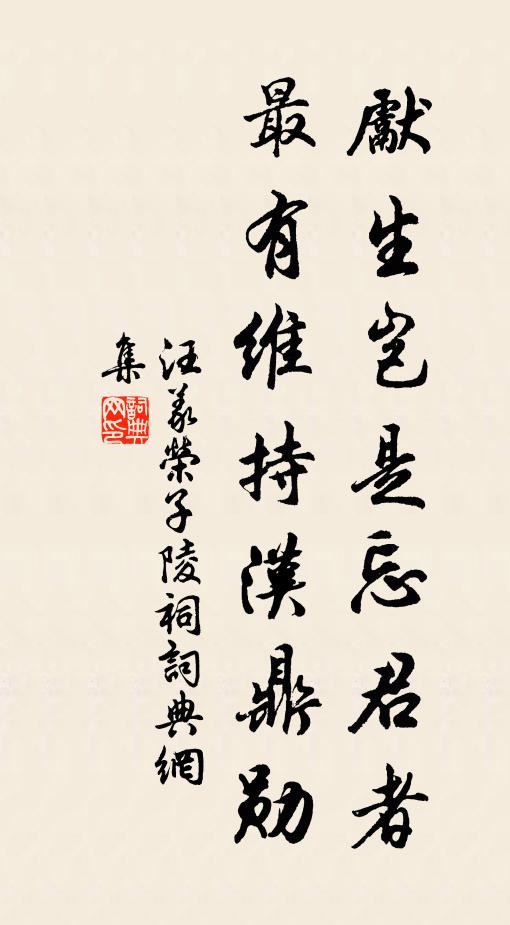 獻生豈是忘君者
最有維持漢鼎勛
汪義榮子陵祠詞典網
集
詞典网印